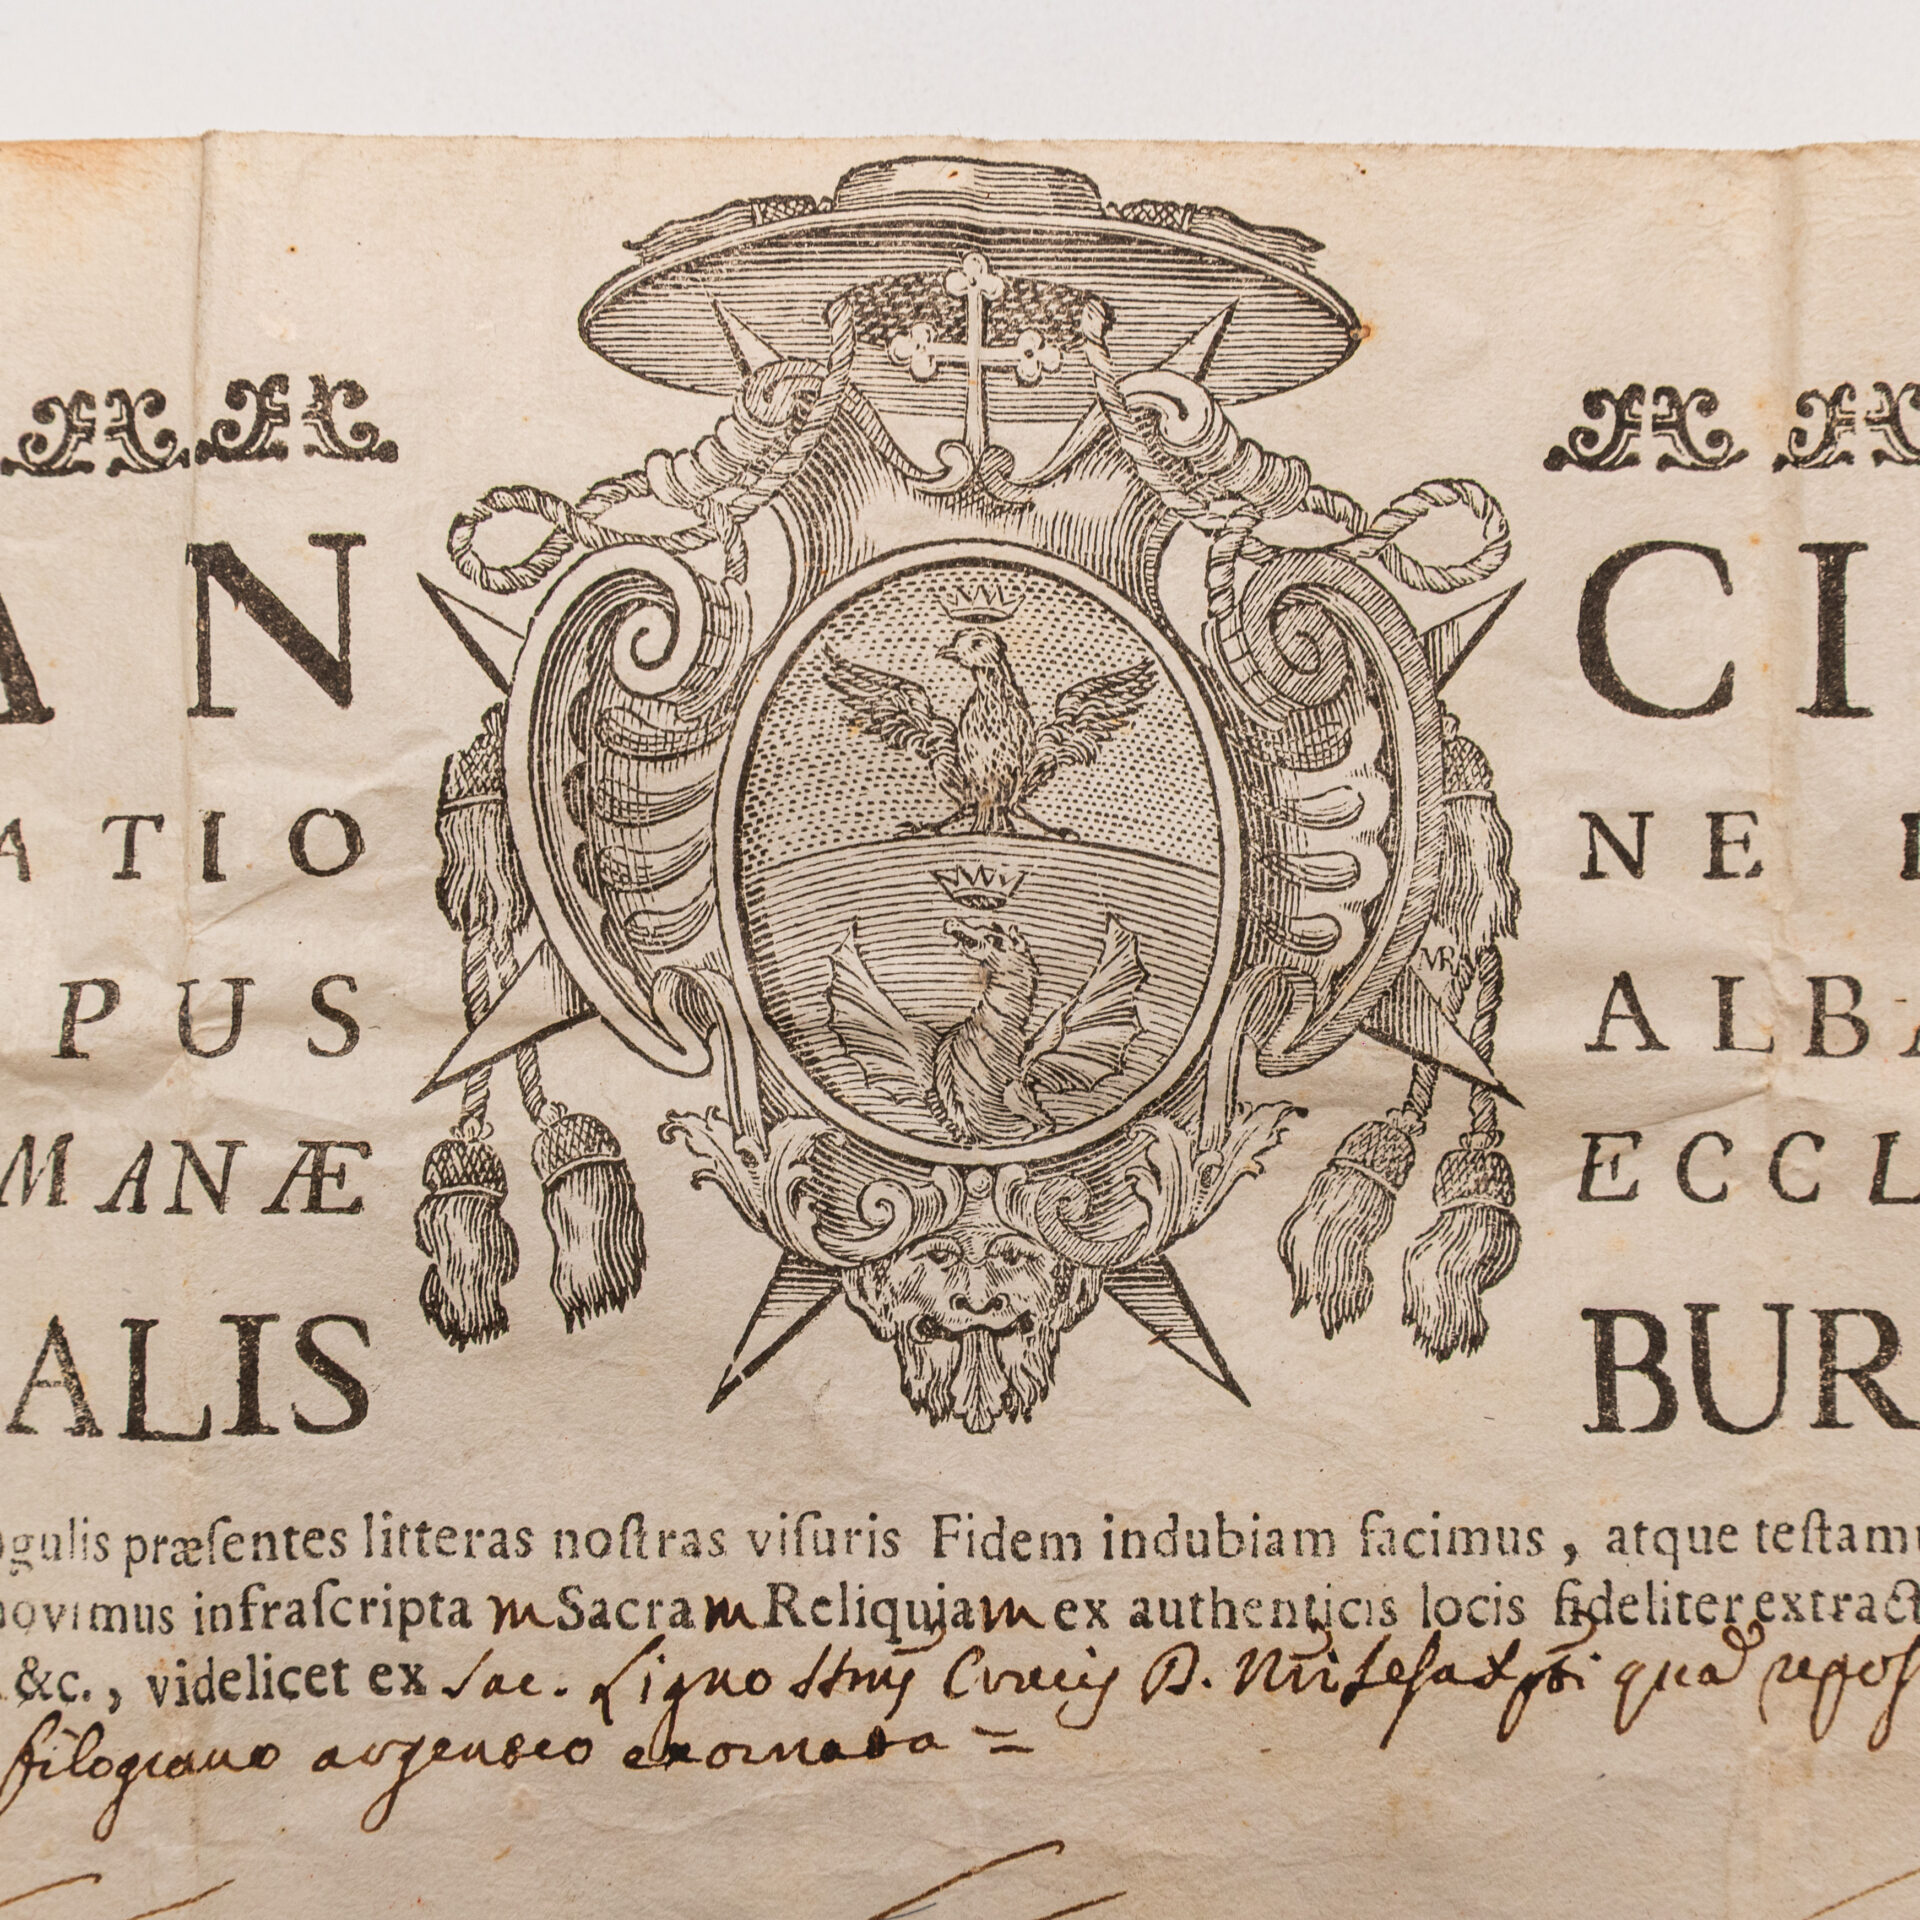 AN CI
ATIO NE
PUS ALBA
MANÆ ECCL
ALIS BUR
MR
gulis præſentes litteras noſtras viſuris Fidem indubiam facimus, atque teſtamu
novimus infraſcripta m Sacra m Reliquia m ex authenticis locis fideliter extract
&c., videlicet ex Sac. Ligno Crucis D. qua repos
filograno argenteo exornata =